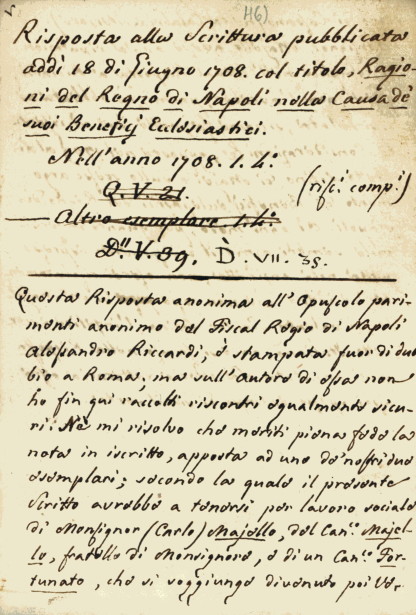 46)
Risposta alla Scrittura pubblicata
addì 18 di Giugno 1708. col titolo, Ragio-
ni del Regno di Napoli nella Causa de'
suoi Beneficj Eclesiastici.
Nell'anno 1708. 1. 4.°
Q. V. 21. (rifc.i comp.i)
Altro esemplare 1. 4.°
D.II V. 39. D. VII. 35.
Questa Risposta anonima all'Opuscolo pari-
menti anonimo del Fiscal Regio di Napoli
Alessandro Riccardi, è stampata fuor di dub-
bio a Roma; ma sull'Autore di essa non
ho fin qui raccolti riscontri egualmente sicu-
ri. Nè mi risolvo che meriti piena fede la
nota in iscritto, apposta ad uno de' nostri due
esemplari; secondo la quale il presente
Scritto avrebbe a tenersi per lavoro sociale
di Monsignor (Carlo) Majello, del Can.co Majel-
lo, fratello di Monsignore, e di un Can.co For-
tunato, che si soggiunge divenuto poi Ve-